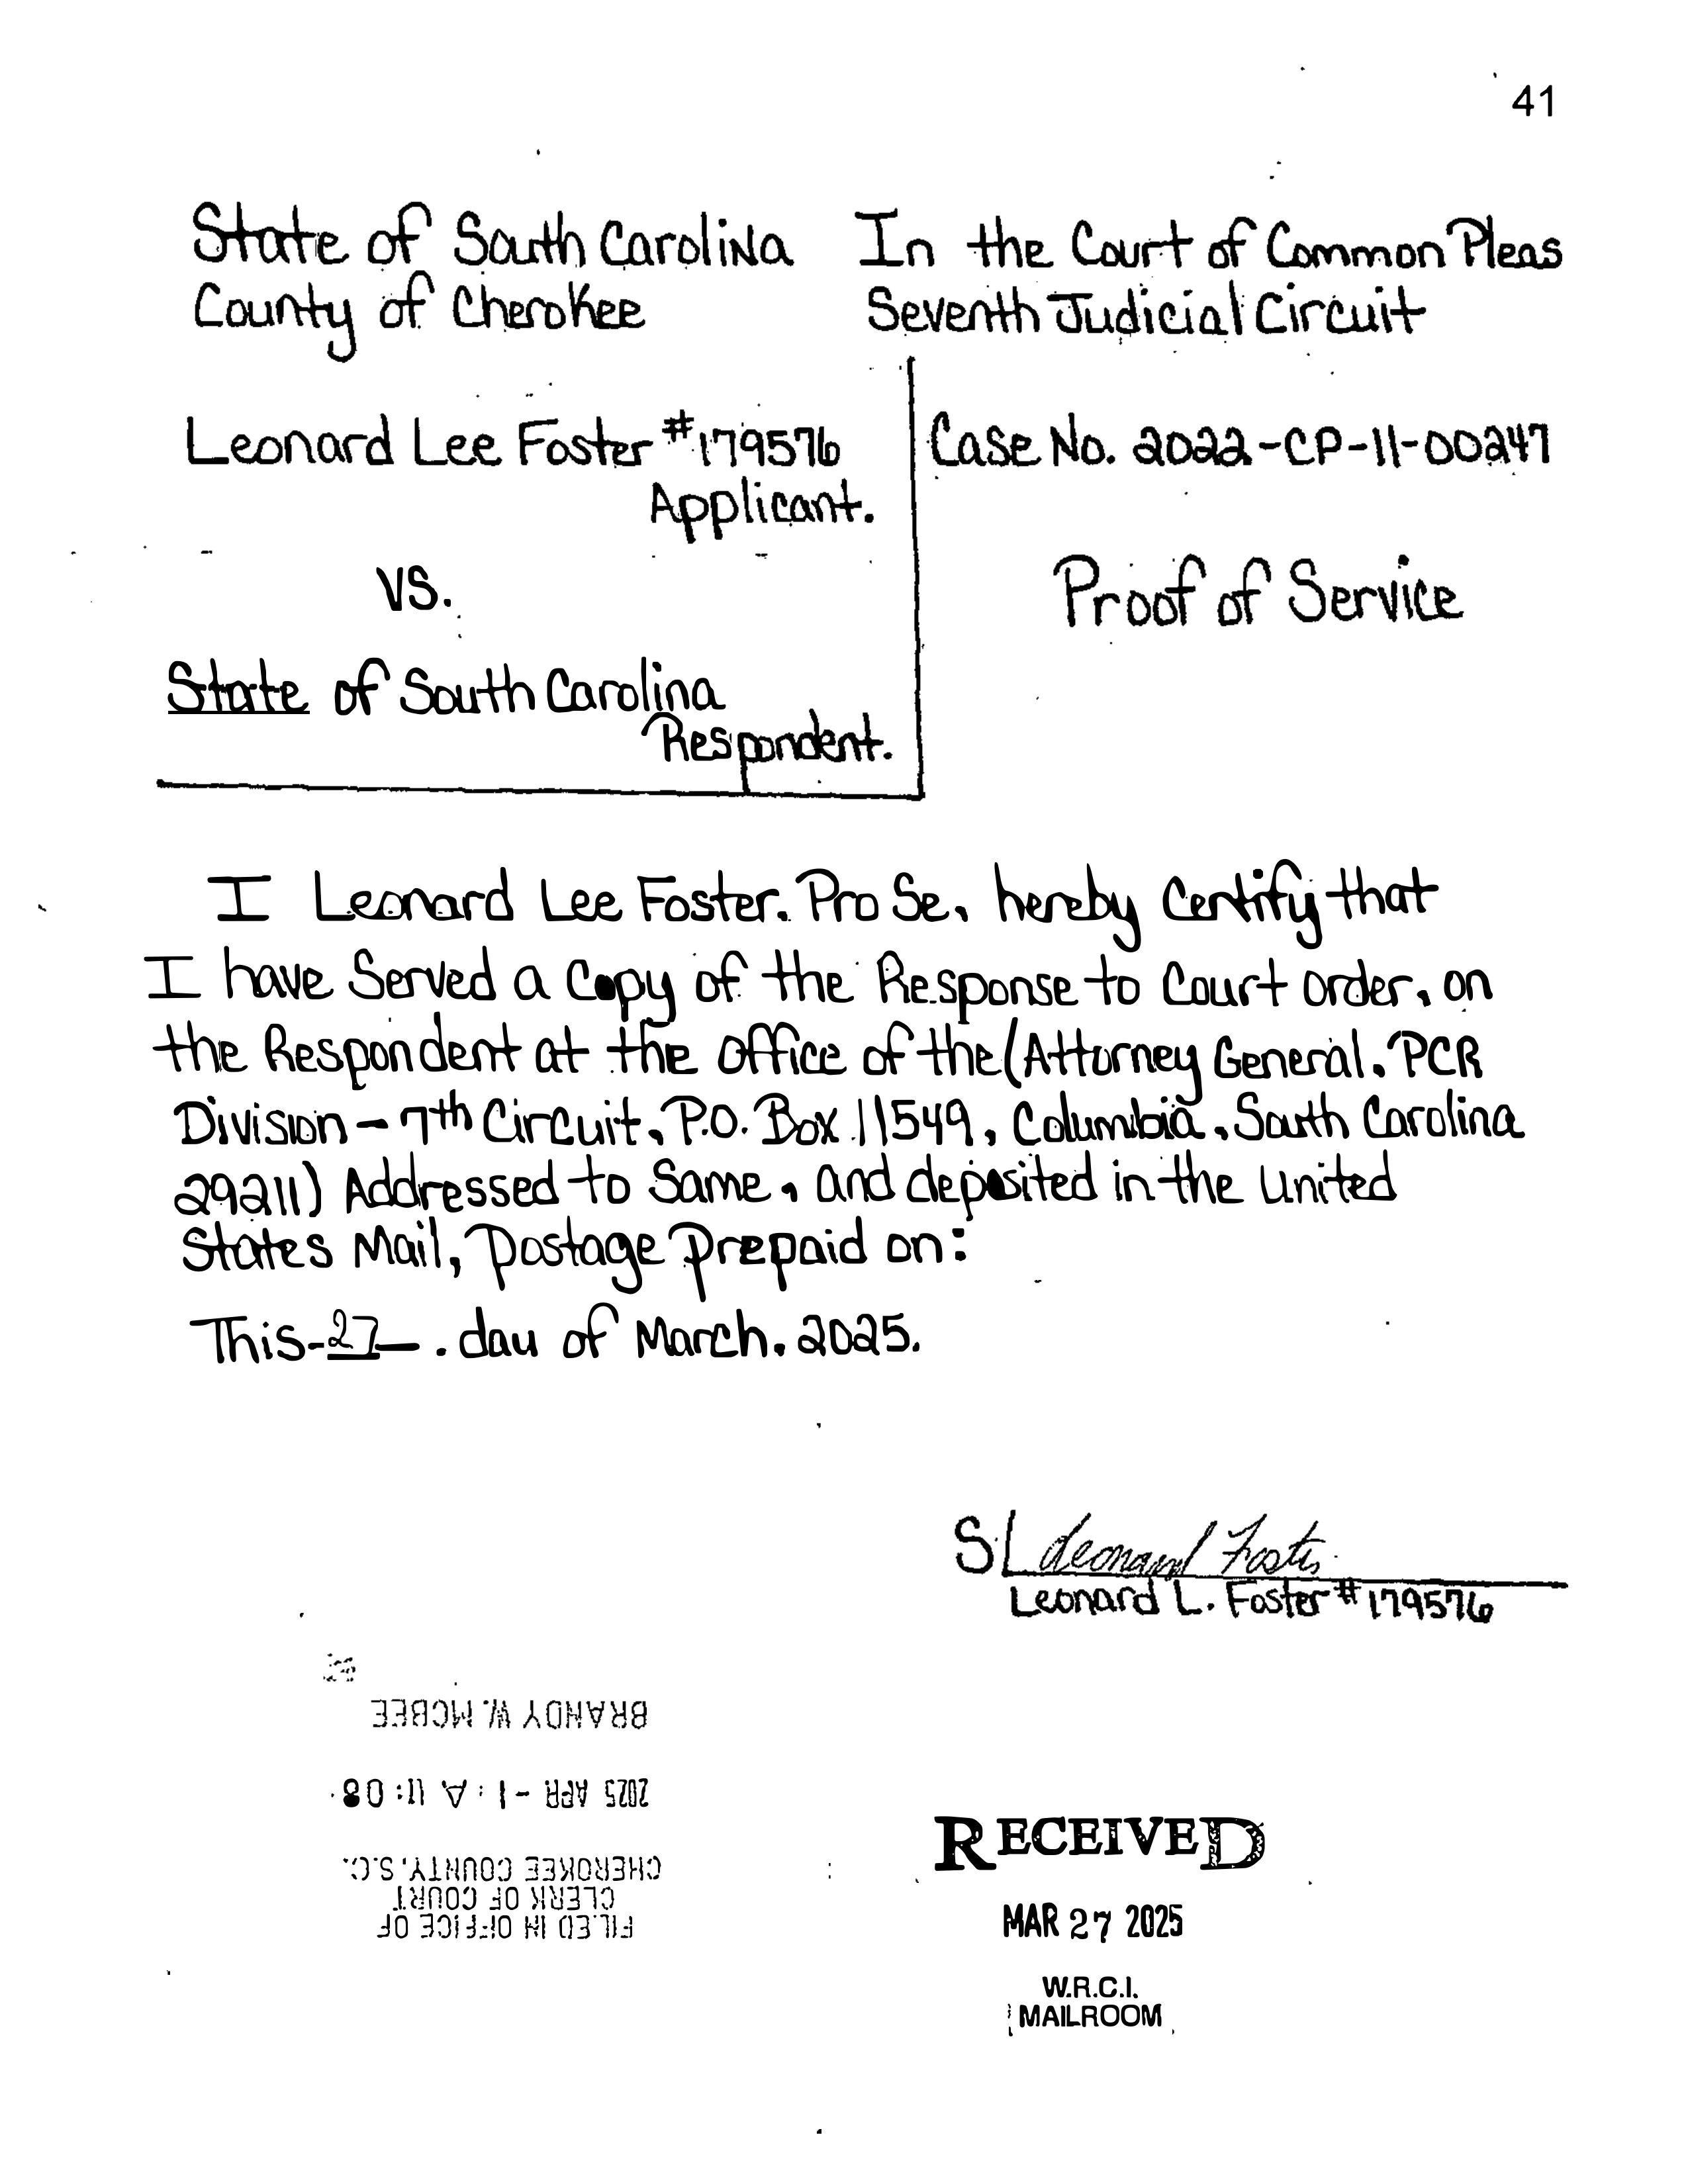 41
State of South Carolina In the Court of Common Pleas
County of Cherokee Seventh Judicial Circuit
Leonard Lee Foster #179576 Case No. 2022-CP-11-00247
Applicant.
vs. Proof of Service
State of South Carolina
Respondent.
I Leonard Lee Foster. Pro Se, hereby Certify that
I have Served a Copy of the Response to Court order, on
the Respondent at the office of the (Attorney General, PCR
Division - 7th Circuit, P.O. Box 11549, Columbia, South Carolina
29211) Addressed to Same, and deposited in the United
States Mail, Postage Prepaid on:
This-27-. day of March. 2025.
S/ Leonard Foster
Leonard L. Foster #179576
FILED IN OFFICE OF
CLERK OF COURT
CHEROKEE COUNTY, S.C.
2025 APR -1 A 11:08
BRANDY W. MCBEE
RECEIVED
MAR 27 2025
W.R.C.I.
MAILROOM